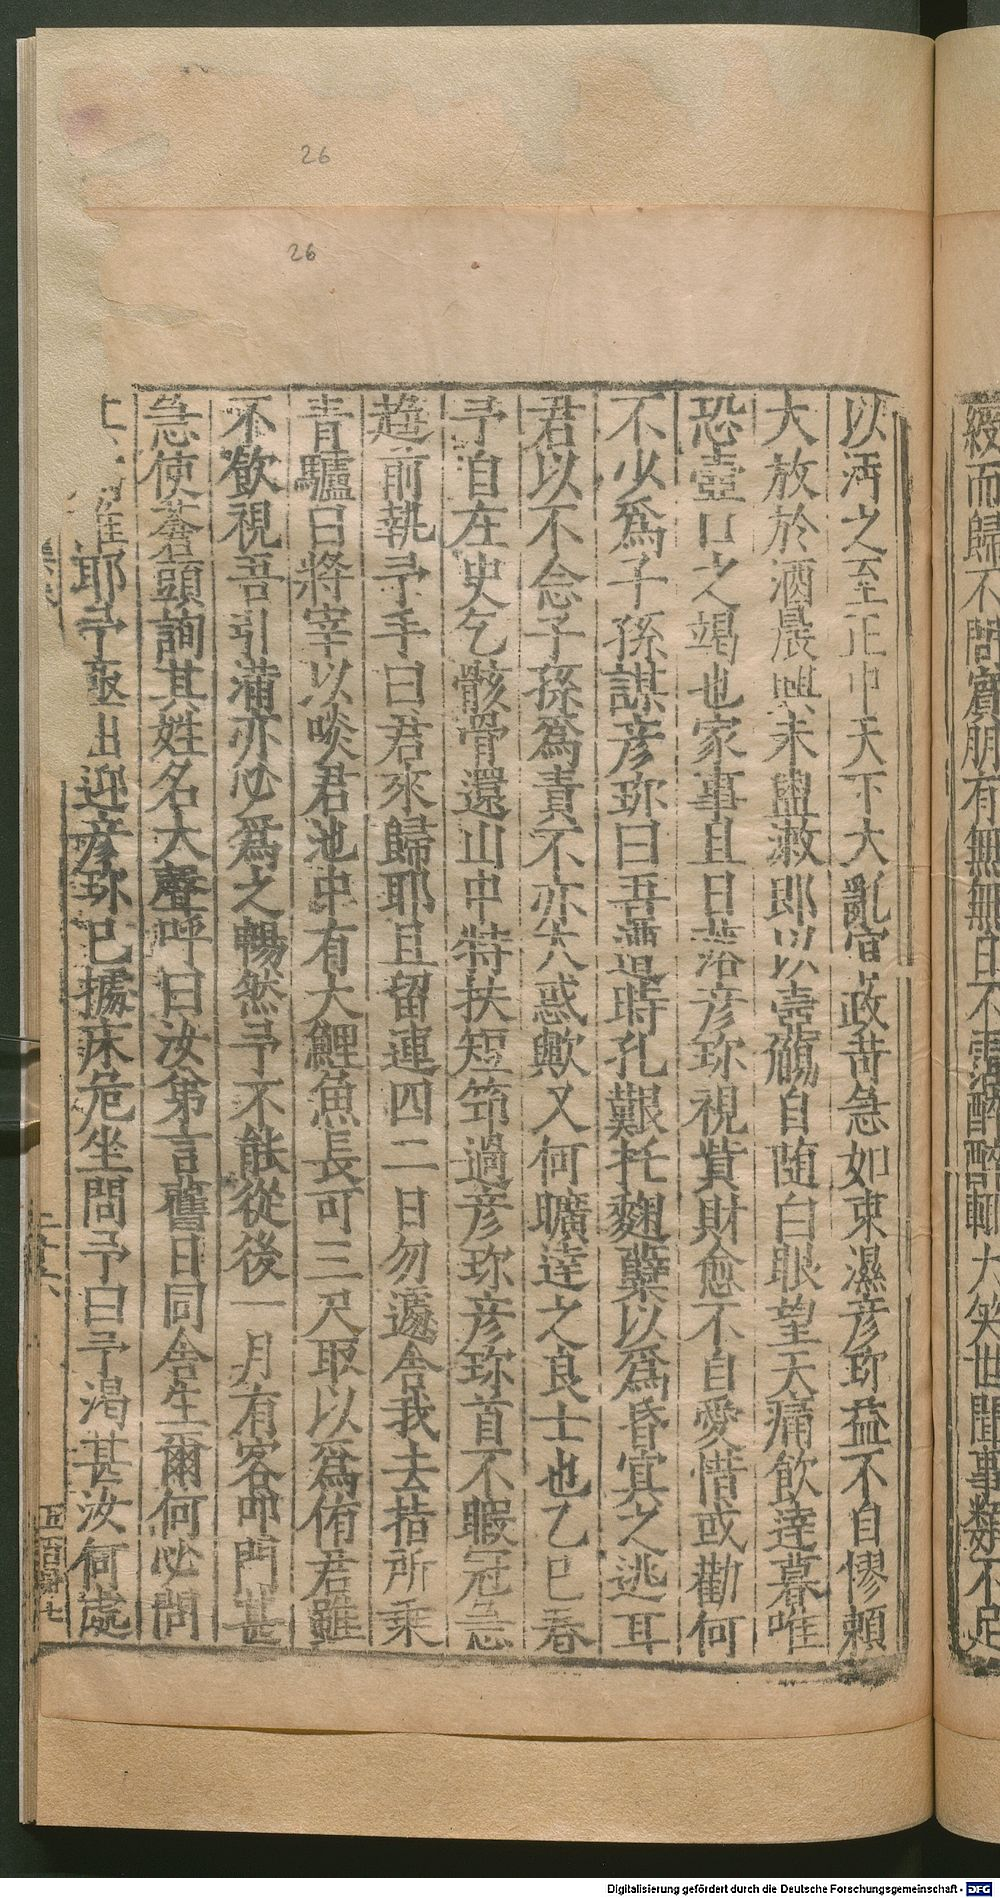 26
26
以沔之至正中天下大亂官政苛急如束濕彦珎益不自慘頼
大放於酒晨興未盥漱郎以壺觴自随白眼望天痛飲達暮唯
恐壺口之竭也家事且日落彦珎視貲財愈不自愛惜或勸何
不少爲子孫謀彦珎曰吾遭時孔艱托麹蘖以爲昏㝠之逃耳
君以不念子孫爲責不亦大惑歟又何曠達之良士也乙巳春
予自在史乞骸骨還山中特扶短笻過彦珎彦珎首不暇冠急
趍前執予手曰君來歸耶且留連四二日勿遽舎我去指所乗
青驢曰將宰以啖君池中有大鯉魚長可三尺取以爲侑君雖
不飲視吾引蒲亦必爲之暢然予不能從後一月有客叩門甚
急使蒼頭詢其姓名大聲呼曰汝第言舊日同舎生爾何必問
耶予亟出迎彦珎已據床危坐問予曰予渇甚汝何處
二十六
綬而歸不問賔朋有無無日不
大笑世間事類不足
Digitalisierung gefördert durch die Deutsche Forschungsgemeinschaft - DFG